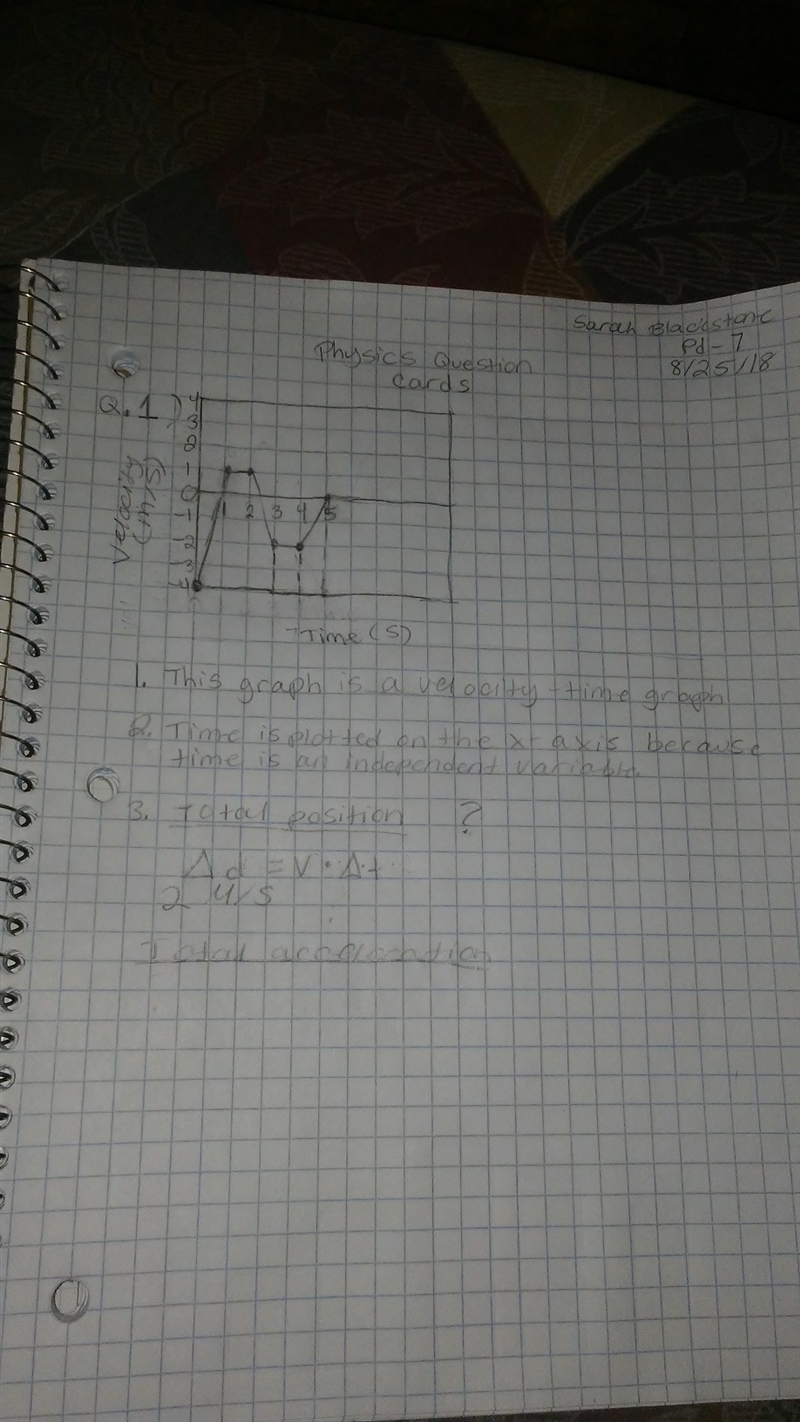 Sarah Blackstone
Pd-7
8/25/18
Physics Question
Cards
Q.1)
4
3
2
1
0
-1
-2
-3
-4
Velocity
1 2 3 4 5
Time (s)
1. This graph is a velocity-time graph
2. Time is plotted on the x-axis because
time is an independent variable
3. Total position ?
Δd = V · Δt
2 4/s
Total acceleration